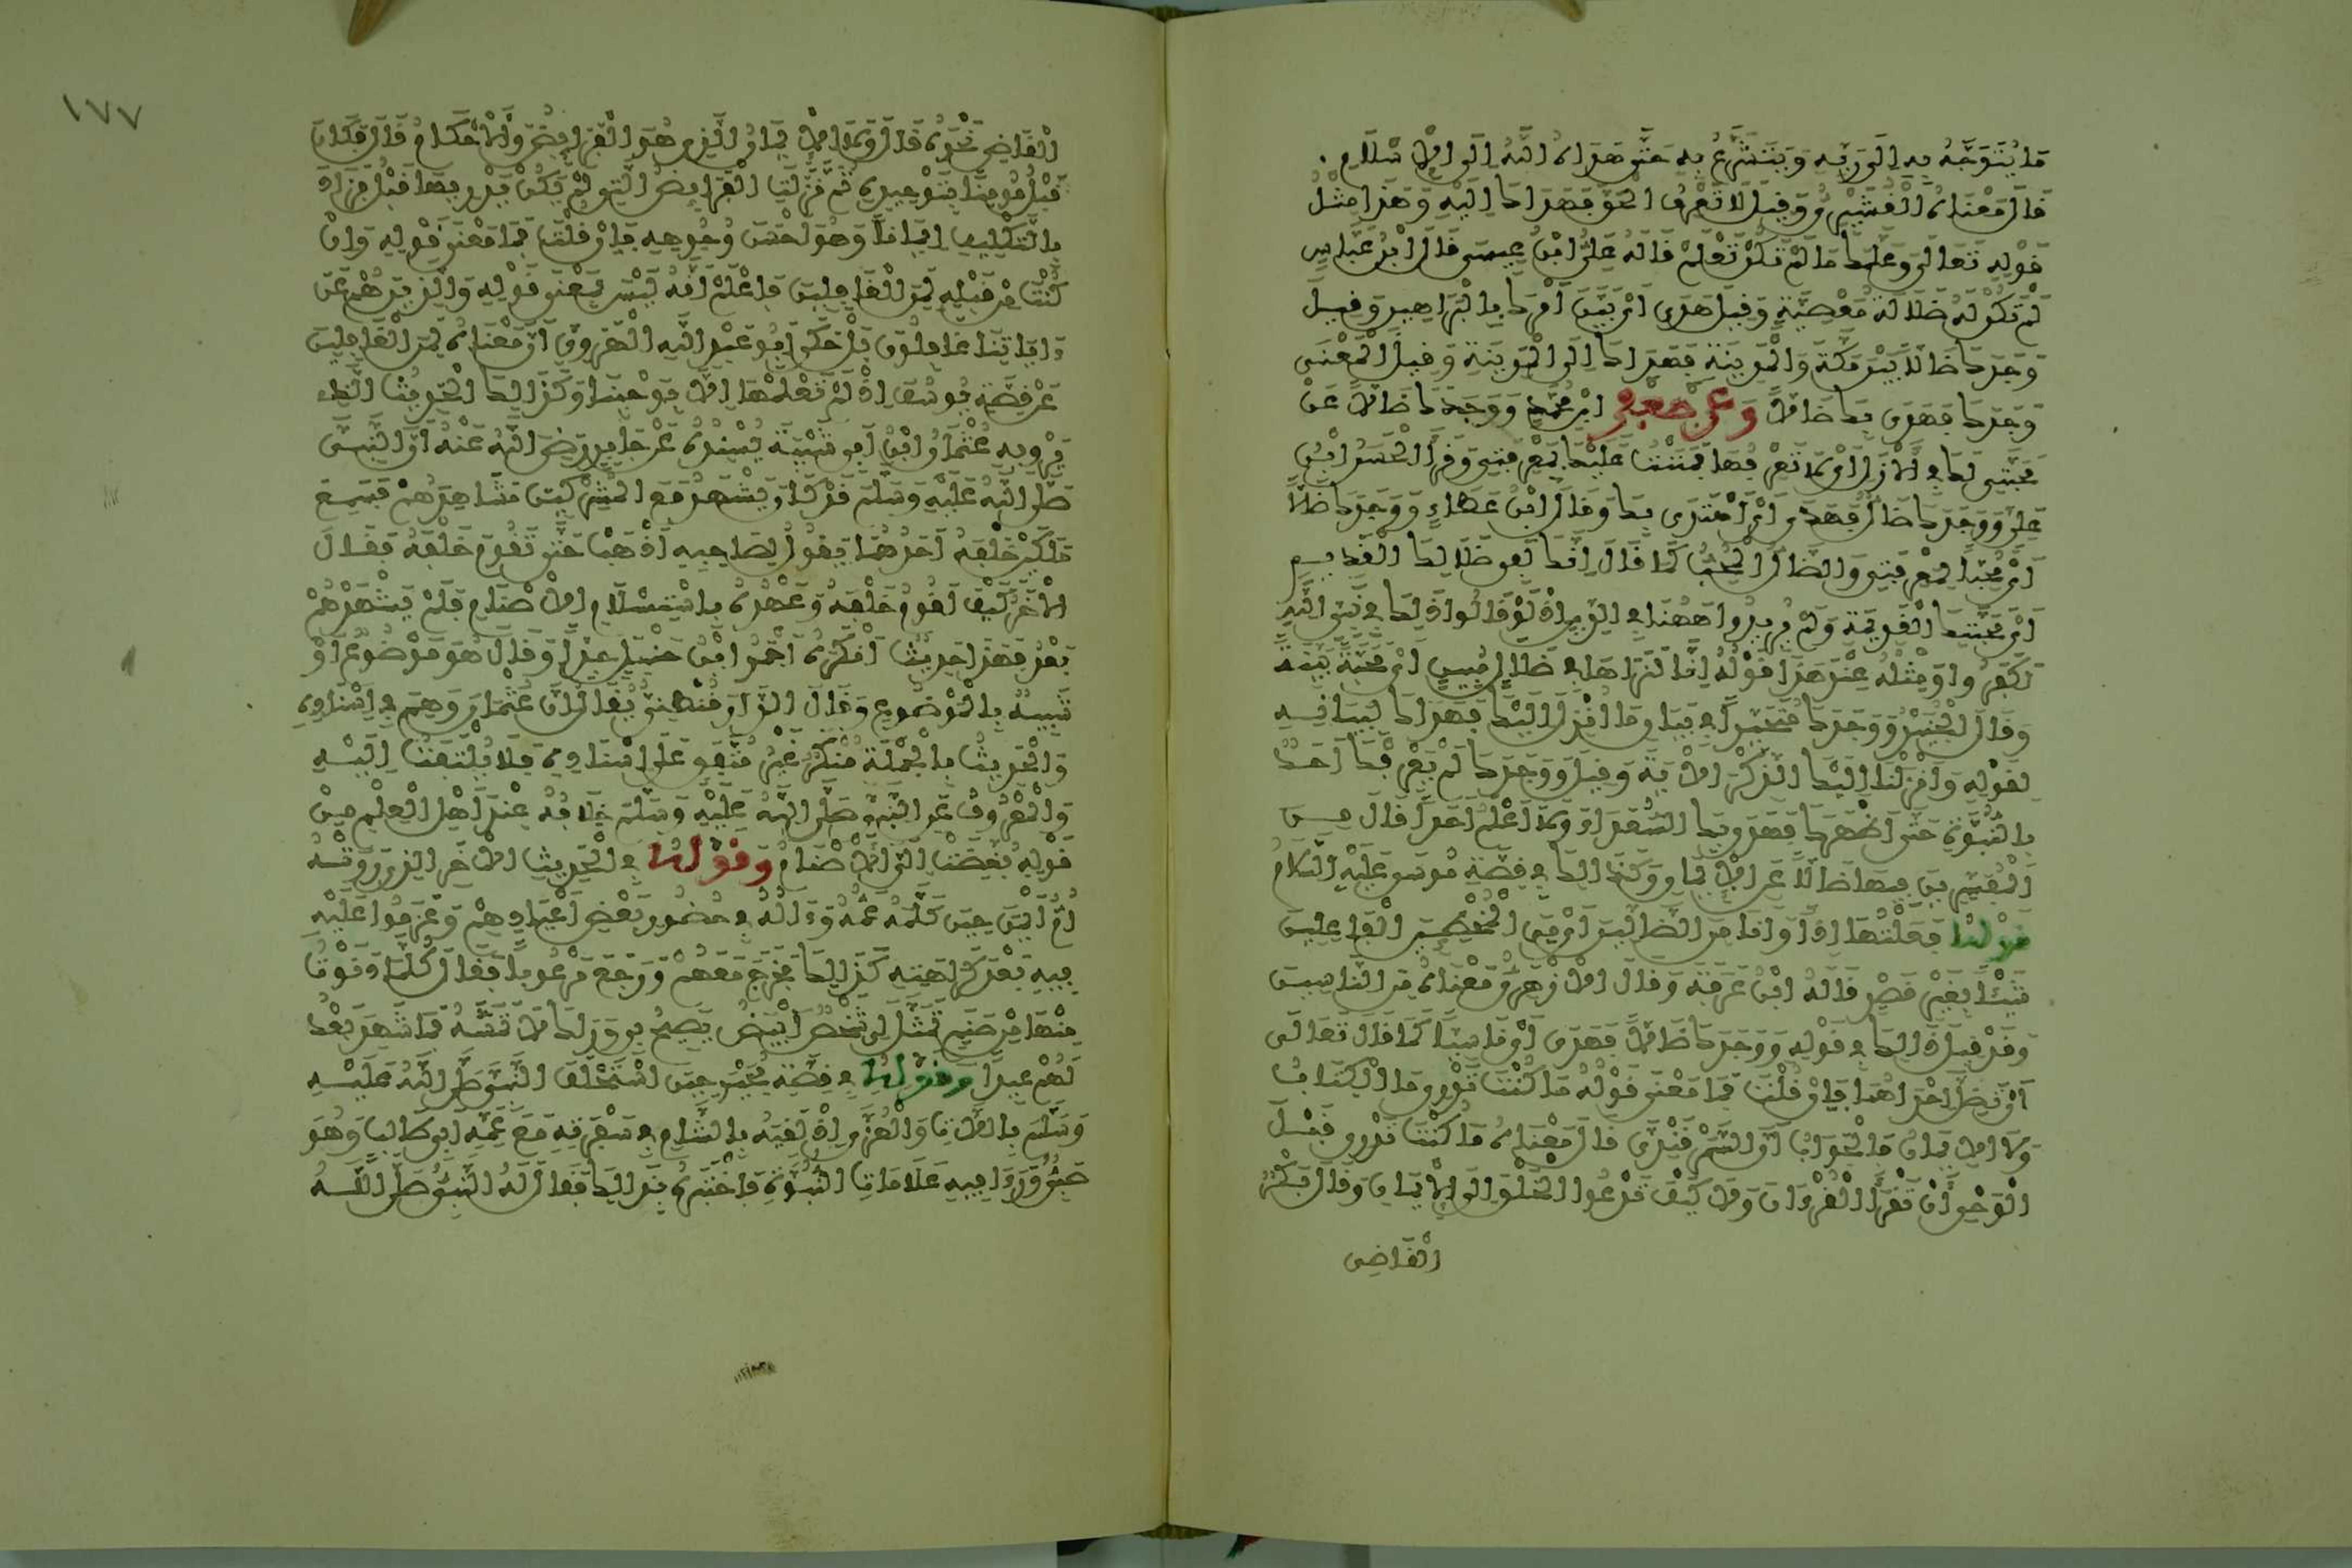 مَا يُتَوَجَّهُ بِهِ إِلَى رَبِّهِ وَيَتَشَرَّعُ بِهِ حَتَّى هَدَاهُ اللَّهُ إِلَى الْإِسْلَامِ.
قَالَ مَعْنَاهُ الْقُشَيْرِيُّ وَقِيلَ لَا تَعْرِفُ الْحَقَّ فَهَدَاكَ إِلَيْهِ وَهَذَا مِثْلُ
قَوْلِهِ تَعَالَى وَعَلَّمَكَ مَا لَمْ تَكُنْ تَعْلَمُ قَالَهُ عَلِيُّ ابْنُ عِيسَى قَالَ ابْنُ عَبَّاسٍ
لَمْ تَكُنْ لَهُ ضَلَالَةُ مَعْصِيَةٍ وَقِيلَ هَدَى أَيْ بَيَّنَ أَمْرَكَ بِالْبَرَاهِينِ وَقِيلَ
وَجَدَكَ ضَالًّا بَيْنَ مَكَّةَ وَالْمَدِينَةِ فَهَدَاكَ إِلَى الْمَدِينَةِ وَقِيلَ الْمَعْنَى
وَجَدَكَ فَهَدَى بِكَ ضَالًّا وَعَنْ جَعْفَرِ ابْنِ مُحَمَّدٍ وَوَجَدَكَ ضَالًّا عَنْ
مَحَبَّتِي لَكَ فِي الْأَزَلِ أَيْ لَا تَعْرِفُهَا فَمَنَنْتُ عَلَيْكَ بِمَعْرِفَتِي وَقَرَأَ الْحَسَنُ ابْنُ
عَلِيٍّ وَوَجَدَكَ ضَالٌّ فَهَدَى أَيْ اهْتَدَى بِكَ وَقَالَ ابْنُ عَطَاءٍ وَوَجَدَكَ ضَالًّا
أَيْ مُحِبًّا لِمَعْرِفَتِي وَالضَّالُّ الْمُحِبُّ كَمَا قَالَ إِنَّكَ لَفِي ضَلَالِكَ الْقَدِيمِ
أَيْ مَحَبَّتِكَ الْقَدِيمَةِ وَلَمْ يُرِيدُوا هَهُنَا فِي الدِّينِ إِذْ لَوْ قَالُوا ذَلِكَ فِي نَبِيِّ اللَّهِ
لَكَفَرُوا وَمِثْلُهُ عِنْدَ هَذَا قَوْلُهُ إِنَّا لَنَرَاهَا فِي ضَلَالٍ مُبِينٍ أَيْ مَحَبَّةٍ بَيِّنَةٍ
وَقَالَ الْجُنَيْدُ وَوَجَدَكَ مُتَحَيِّرًا فِي بَيَانِ مَا أُنْزِلَ إِلَيْكَ فَهَدَاكَ لِبَيَانِهِ
لِقَوْلِهِ وَأَنْزَلْنَا إِلَيْكَ الذِّكْرَ الْآيَةَ وَقِيلَ وَوَجَدَكَ لَمْ يَعْرِفْكَ أَحَدٌ
بِالنُّبُوَّةِ حَتَّى أَظْهَرَكَ فَهَدَى بِكَ السُّعَدَاءَ وَلَا أَعْلَمُ أَحَدًا قَالَ مِنَ
الْمُفَسِّرِينَ فِيهَا ضَالًّا عَنِ الْإِيمَانِ وَكَذَلِكَ فِي قِصَّةِ مُوسَى عَلَيْهِ السَّلَامُ
قَوْلُهُ فَعَلْتُهَا إِذًا وَأَنَا مِنَ الضَّالِّينَ أَيْ مِنَ الْمُخْطِئِينَ الْفَاعِلِينَ
شَيْئًا بِغَيْرِ قَصْدٍ قَالَهُ ابْنُ عَرَفَةَ وَقَالَ الْأَزْهَرِيُّ مَعْنَاهُ مِنَ النَّاسِينَ
وَقَدْ قِيلَ ذَلِكَ فِي قَوْلِهِ وَوَجَدَكَ ضَالًّا فَهَدَى أَيْ نَاسِيًا كَمَا قَالَ تَعَالَى
أَنْ تَضِلَّ إِحْدَاهُمَا فَإِنْ قُلْتَ فَمَا مَعْنَى قَوْلُهُ مَا كُنْتَ تَدْرِي مَا الْكِتَابُ
وَلَا الْإِيمَانُ فَالْجَوَابُ أَنَّ السَّمَرْقَنْدِيَّ قَالَ مَعْنَاهُ مَا كُنْتَ تَدْرِي قَبْلَ
الْوَحْيِ أَنْ تَقْرَأَ الْقُرْءَانَ وَلَا كَيْفَ تَدْعُوا الْخَلْقَ إِلَى الْإِيمَانِ وَقَالَ بَكْرٌ
الْقَاضِي
١٧٧
الْقَاضِي نَحْوَهُ قَالَ وَلَا الْإِيمَانُ الَّذِي هُوَ الْفَرَائِضُ وَالْأَحْكَامُ قَالَ فَكَانَ
قَبْلُ مُؤْمِنًا بِتَوْحِيدِهِ ثُمَّ نَزَلَتِ الْفَرَائِضُ الَّتِي لَمْ يَكُنْ يَدْرِيهَا قَبْلُ فَزَادَ
بِالتَّكْلِيفِ إِيمَانًا وَهُوَ أَحْسَنُ وُجُوهِهِ فَإِنْ قُلْتَ فَمَا مَعْنَى قَوْلِهِ وَإِنْ
كُنْتَ مِنْ قَبْلِهِ لَمِنَ الْغَافِلِينَ فَاعْلَمْ أَنَّهُ لَيْسَ بِمَعْنَى قَوْلِهِ وَالَّذِينَ هُمْ عَنْ
ءَايَاتِنَا غَافِلُونَ بَلْ حَكَى أَبُو عَبْدِ اللَّهِ الْهَرَوِيُّ أَنَّ مَعْنَاهُ لَمِنَ الْغَافِلِينَ
عَنْ قِصَّةِ يُوسُفَ إِذْ لَمْ تَعْلَمْهَا إِلَّا بِوَحْيِنَا وَكَذَلِكَ الْحَدِيثُ الَّذِي
يَرْوِيهِ عُثْمَانُ ابْنُ أَبِي شَيْبَةَ بِسَنَدِهِ عَنْ جَابِرٍ رَضِيَ اللَّهُ عَنْهُ أَنَّ النَّبِيَّ
صَلَّى اللَّهُ عَلَيْهِ وَسَلَّمَ قَدْ كَانَ يَشْهَدُ مَعَ الْمُشْرِكِينَ مَشَاهِدَهُمْ فَسَمِعَ
مَلَكَيْنِ خَلْفَهُ أَحَدُهُمَا يَقُولُ لِصَاحِبِهِ اذْهَبْ حَتَّى تَقُومَ خَلْفَهُ فَقَالَ
الْآخَرُ كَيْفَ أَقُومُ خَلْفَهُ وَعَهْدُهُ بِاسْتِلَامِ الْأَصْنَامِ فَلَمْ يَشْهَدْهُمْ
بَعْدُ فَهَذَا حَدِيثٌ أَنْكَرَهُ أَحْمَدُ ابْنُ حَنْبَلٍ جِدًّا وَقَالَ هُوَ مَوْضُوعٌ أَوْ
شَبِيهٌ بِالْمَوْضُوعِ وَقَالَ الدَّارَقُطْنِيُّ يُقَالُ إِنَّ عُثْمَانَ وَهِمَ فِي إِسْنَادِهِ
وَالْحَدِيثُ بِالْجُمْلَةِ مُنْكَرٌ غَيْرُ مُتَّفَقٍ عَلَى إِسْنَادِهِ فَلَا يُلْتَفَتُ إِلَيْهِ
وَالْمَعْرُوفُ عَنِ النَّبِيِّ صَلَّى اللَّهُ عَلَيْهِ وَسَلَّمَ خِلَافُهُ عِنْدَ أَهْلِ الْعِلْمِ مِنْ
قَوْلِهِ بُغِّضَتْ إِلَيَّ الْأَصْنَامُ وَقَوْلُهُ فِي الْحَدِيثِ الْآخَرِ الَّذِي رَوَتْهُ
أُمُّ أَيْمَنَ حِينَ كَلَّمَهُ عَمُّهُ وَءَالُهُ فِي حُضُورِ بَعْضِ أَعْيَادِهِمْ وَعَزَمُوا عَلَيْهِ
فِيهِ بَعْدَ كَرَاهَتِهِ لِذَلِكَ فَخَرَجَ مَعَهُمْ وَرَجَعَ مَرْعُوبًا فَقَالَ كُلَّمَا دَنَوْتُ
مِنْهَا مِنْ صَنَمٍ تَمَثَّلَ لِي شَخْصٌ أَبْيَضُ يَصِيحُ بِي وَرَاءَكَ لَا تَمَسَّهُ فَمَا شَهِدَ بَعْدُ
لَهُمْ عِيدًا وَقَوْلُهُ فِي قِصَّةِ بَحِيرَى حِينَ اسْتَحْلَفَ النَّبِيَّ صَلَّى اللَّهُ عَلَيْهِ
وَسَلَّمَ بِاللَّاتِ وَالْعُزَّى إِذْ لَقِيَهُ بِالشَّامِ فِي سَفْرَتِهِ مَعَ عَمِّهِ أَبِي طَالِبٍ وَهُوَ
صَبِيٌّ وَرَأَى فِيهِ عَلَامَاتِ النُّبُوَّةِ فَاخْتَبَرَهُ بِذَلِكَ فَقَالَ لَهُ النَّبِيُّ صَلَّى اللَّهُ